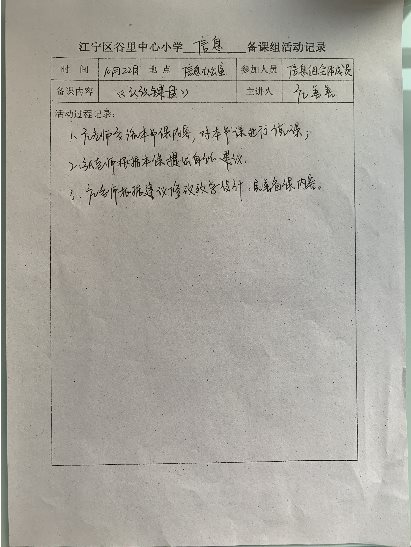 江宁区谷里中心小学 信息 备课组活动记录
时间 10月22日 地点 信息办公室 参加人员 信息组全体成员
备课内容 《认识键盘》 主讲人
活动过程记录:
1、老师交流本节课内容,对本节课进行说课;
2、老师根据本课提出自己建议.
3、老师根据建议修改教学设计,完善备课内容。